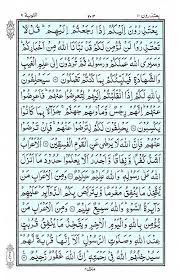 يعتذرون ١١
٢٠٣
التوبة ٩
يَعْتَذِرُوْنَ اِلَيْكُمْ اِذَا رَجَعْتُمْ اِلَيْهِمْ ؕ قُلْ لَّا
تَعْتَذِرُوْا لَنْ نُّؤْمِنَ لَكُمْ قَدْ نَبَّاَنَا اللّٰهُ مِنْ اَخْبَارِكُمْ ؕ
وَسَيَرَى اللّٰهُ عَمَلَكُمْ وَرَسُوْلُهٗ ثُمَّ تُرَدُّوْنَ اِلٰى عٰلِمِ الْغَيْبِ
وَالشَّهَادَةِ فَيُنَبِّئُكُمْ بِمَا كُنْتُمْ تَعْمَلُوْنَ ۝ سَيَحْلِفُوْنَ
بِاللّٰهِ لَكُمْ اِذَا انْقَلَبْتُمْ اِلَيْهِمْ لِتُعْرِضُوْا عَنْهُمْ ؕ فَاَعْرِضُوْا
عَنْهُمْ ؕ اِنَّهُمْ رِجْسٌ وَّمَاْوٰىهُمْ جَهَنَّمُ جَزَآءًۢ بِمَا كَانُوْا
يَكْسِبُوْنَ ۝ يَحْلِفُوْنَ لَكُمْ لِتَرْضَوْا عَنْهُمْ فَاِنْ تَرْضَوْا عَنْهُمْ
فَاِنَّ اللّٰهَ لَا يَرْضٰى عَنِ الْقَوْمِ الْفٰسِقِيْنَ ۝ اَلْاَعْرَابُ اَشَدُّ كُفْرًا
وَّنِفَاقًا وَّاَجْدَرُ اَلَّا يَعْلَمُوْا حُدُوْدَ مَاۤ اَنْزَلَ اللّٰهُ عَلٰى
رَسُوْلِهٖ ؕ وَاللّٰهُ عَلِيْمٌ حَكِيْمٌ ۝ وَمِنَ الْاَعْرَابِ مَنْ يَّتَّخِذُ
مَا يُنْفِقُ مَغْرَمًا وَّيَتَرَبَّصُ بِكُمُ الدَّوَآئِرَ ؕ عَلَيْهِمْ
دَآئِرَةُ السَّوْءِ ؕ وَاللّٰهُ سَمِيْعٌ عَلِيْمٌ ۝ وَمِنَ الْاَعْرَابِ مَنْ
يُّؤْمِنُ بِاللّٰهِ وَالْيَوْمِ الْاٰخِرِ وَيَتَّخِذُ مَا يُنْفِقُ قُرُبٰتٍ
عِنْدَ اللّٰهِ وَصَلَوٰتِ الرَّسُوْلِ ؕ اَلَاۤ اِنَّهَا قُرْبَةٌ لَّهُمْ ؕ
سَيُدْخِلُهُمُ اللّٰهُ فِيْ رَحْمَتِهٖ ؕ اِنَّ اللّٰهَ غَفُوْرٌ رَّحِيْمٌ ۝